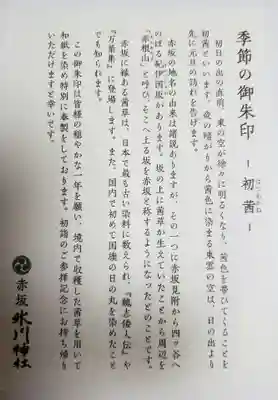 季節の御朱印 ー初茜ー
はつあかね
初日の出の直前、東の空が徐々に明るくなり、茜色を帯びてくることを
初茜といいます。夜の暗がりから茜色に染まる東雲の空は、日の出より
先に元旦の訪れを告げます。
赤坂の地名の由来は諸説ありますが、その一つに赤坂見附から四ッ谷へ
のぼる紀伊国坂があります。坂の上に茜草が生えていたことから周辺を
「赤根山」と呼び、そこへ上る坂を赤坂と称するようになったとのことです。
赤坂に縁ある茜草は、日本で最も古い染料に数えられ、『魏志倭人伝』や
『万葉集』に登場します。また、国内で初めて国旗の日の丸を染めたこと
でも知られます。
この御朱印は皆様の穏やかな一年を願い、境内で収穫した茜草を用いて
和紙を染め特別に奉製をしております。初詣のご参拝記念にお持ち帰り
いただけますと幸いです。
赤坂 氷川神社